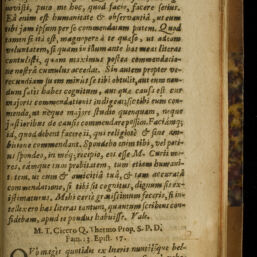 novisti, puto me hoc, quod facio, facere serius.
Ea enim est humanitate & observantia, ut eum
tibi jam ipsum per se commendatum putem. Quod
tamen si ita est, magnopere à te quæso, ut ad eam
voluntatem, si quam in illum ante has meas literas
contulisti, quam maximus possit commendatione
nostra cumulus accedat. Sin autem propter verecundiam
suam minus se tibi obtulit, aut eum nondum
satis habes cognitum, aut quæ causa est cur
majoris commendationis indigeat; sic tibi eum commendo,
ut neque majore studio quenquam, neque
justioribus de causis commendare possim. Faciamque
id, quod debent facere ii, qui religiosè & sine ambitione
commendant. Spondebo enim tibi, vel potius
spondeo, in meque recipio, eos esse M. Curii mores,
eamque tum probitatem, tum etiam humanitatem,
ut eum & amicitiâ tuâ, & tam accuratâ
commendatione, si tibi sit cognitus, dignum sis existimaturus.
Mihi certè gratissimum feceris, si intellexero
has literas tantum, quantum scribens confidebam,
apud te pondus habuisse. Vale.
M. T. Cicero Q. Thermo Prop. S. P. D.
Fam. 13. Epist. 57.
QUo magis quotidie ex literis nuntiisque bel-